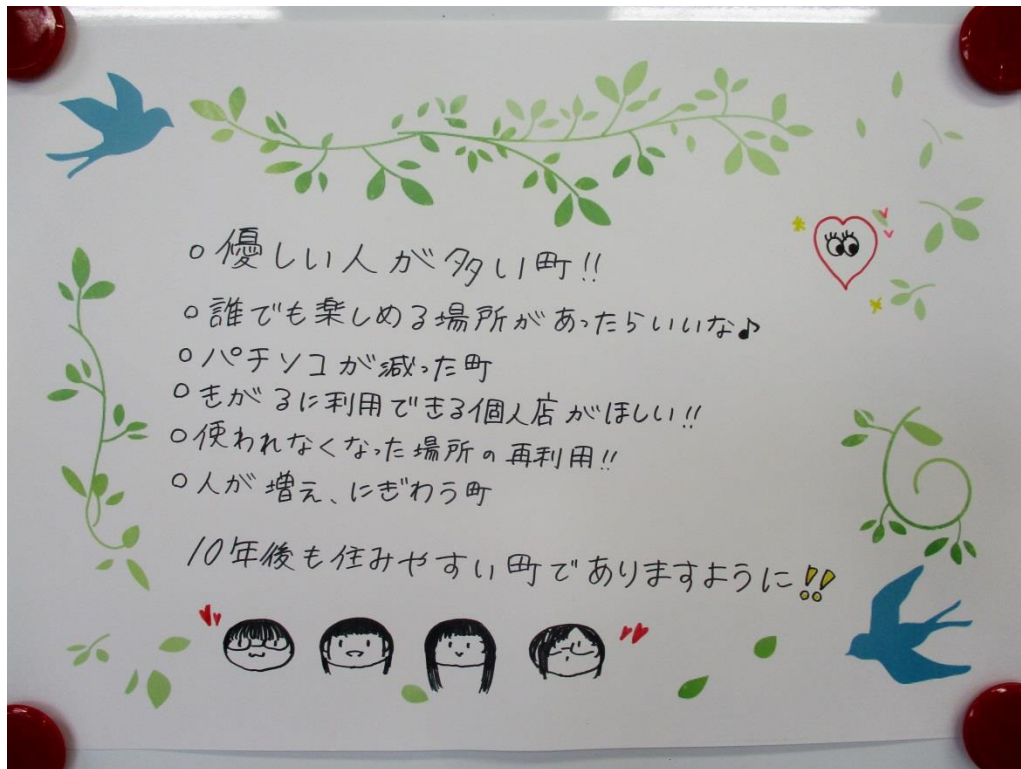 ○優しい人が多い町!!
○誰でも楽しめる場所があったらいいな♪
○パチンコが減った町
○きがるに利用できる個人店がほしい!!
○使われなくなった場所の再利用!!
○人が増え、にぎわう町
10年後も住みやすい町でありますように!!